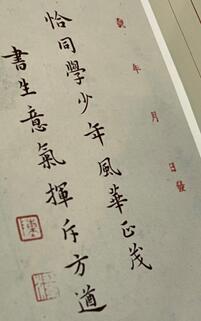 年 月 日
恰同學少年風華正茂
書生意氣揮斥方遒
陳